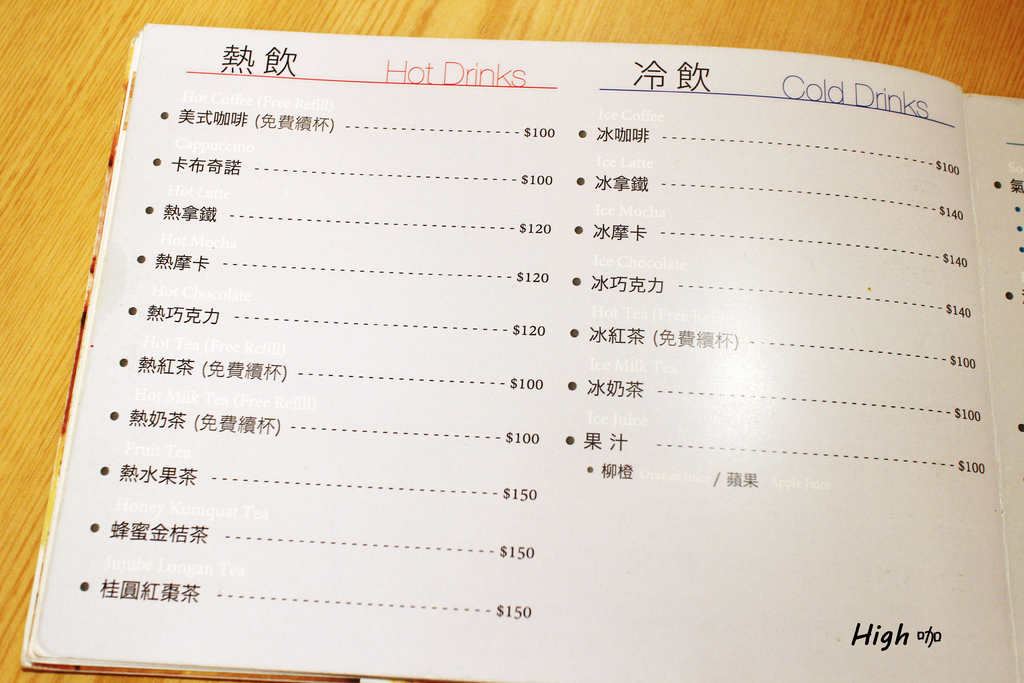 熱飲 Hot Drinks
Hot Coffee (Free Refill)
美式咖啡 (免費續杯) $100
Cappuccino
卡布奇諾 $100
Hot Latte
熱拿鐵 $120
Hot Mocha
熱摩卡 $120
Hot Chocolate
熱巧克力 $120
Hot Tea (Free Refill)
熱紅茶 (免費續杯) $100
Hot Milk Tea (Free Refill)
熱奶茶 (免費續杯) $100
Fruit Tea
熱水果茶 $150
Honey Kumquat Tea
蜂蜜金桔茶 $150
Jujube Longan Tea
桂圓紅棗茶 $150
冷飲 Cold Drinks
Ice Coffee
冰咖啡 $100
Ice Latte
冰拿鐵 $140
Ice Mocha
冰摩卡 $140
Ice Chocolate
冰巧克力 $140
Hot Tea (Free Refill)
冰紅茶 (免費續杯) $100
Ice Milk Tea
冰奶茶 $100
Ice Juice
果汁 $100
柳橙 Orange Juice / 蘋果 Apple Juice
氣
High 咖